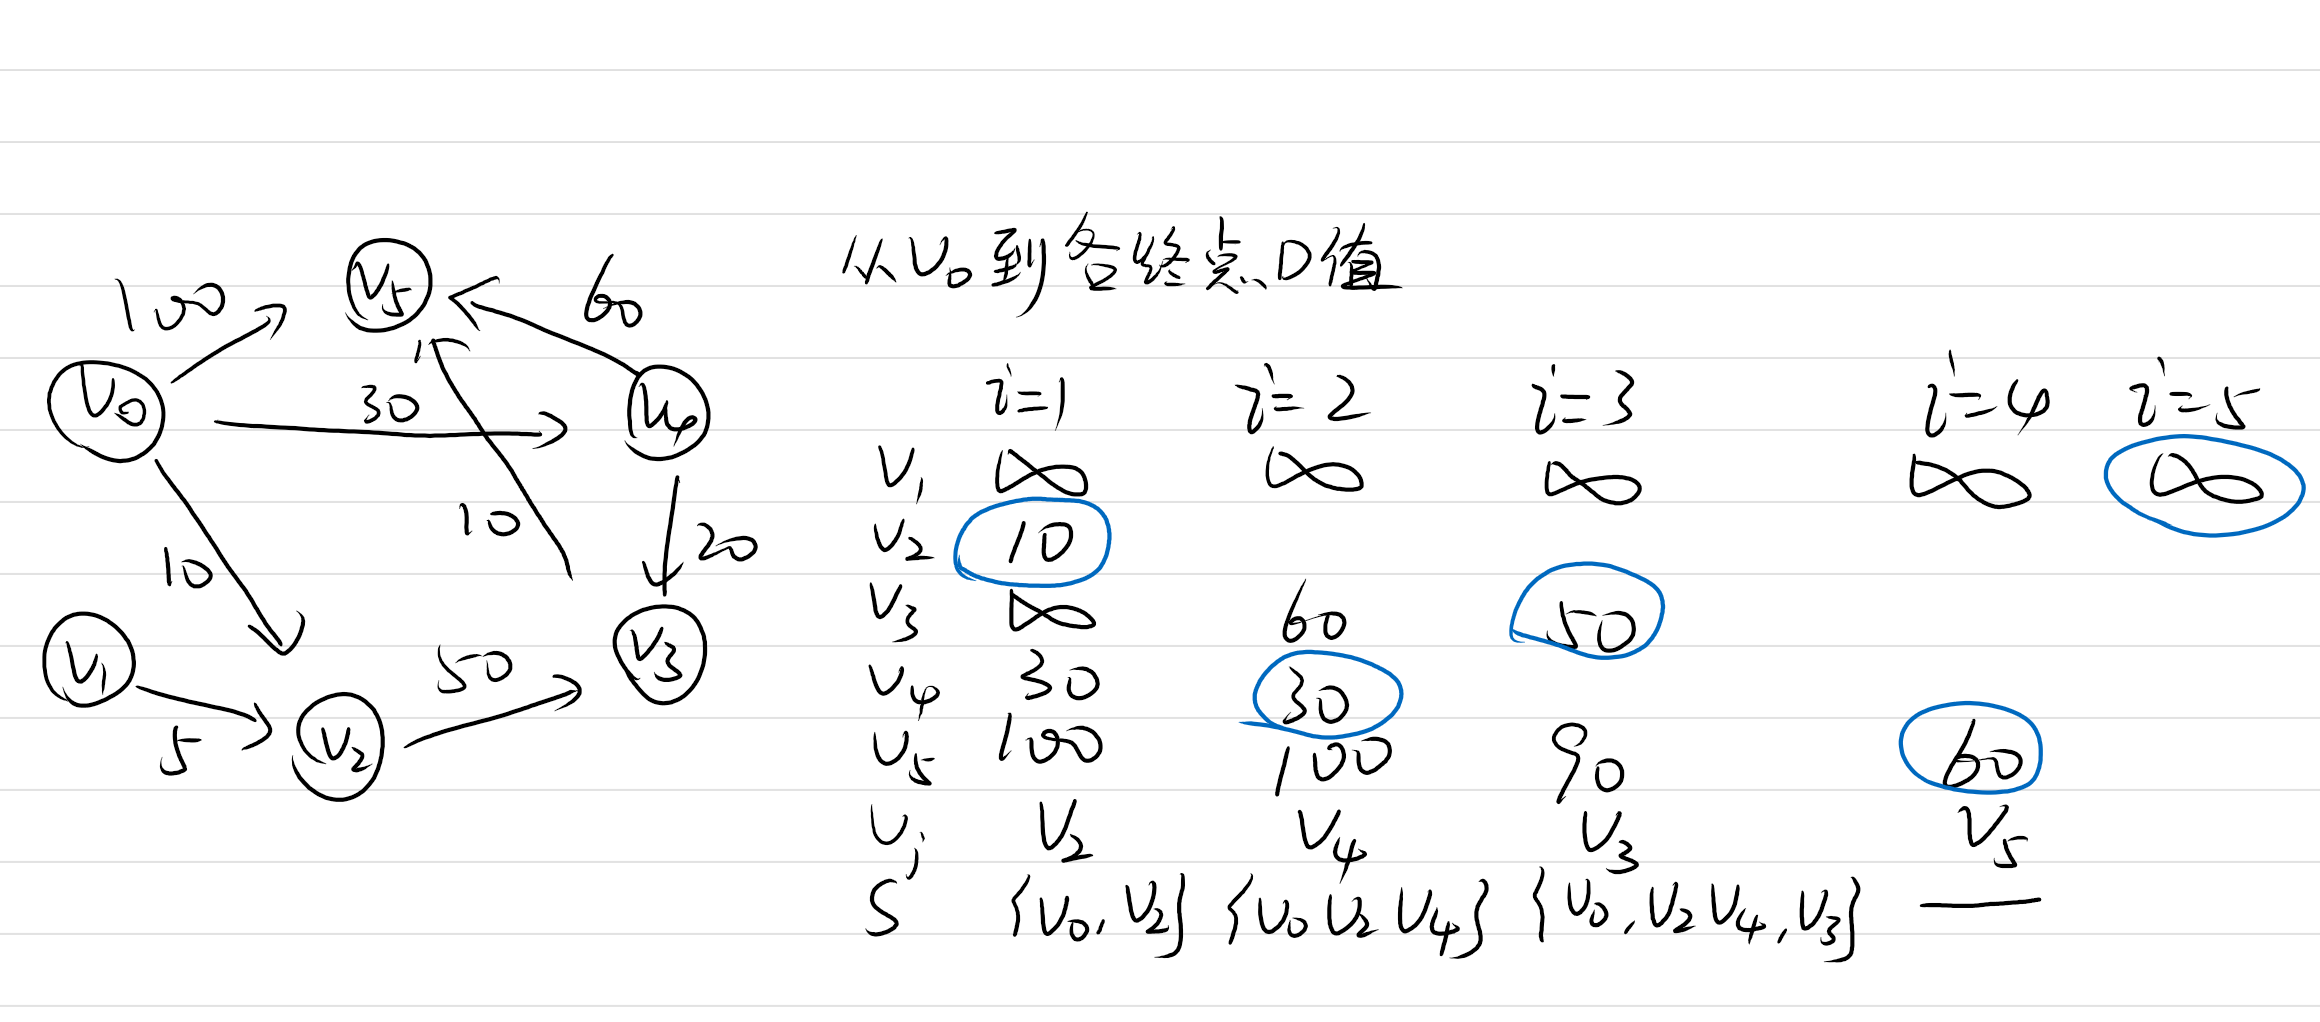 从V0到各终点D值
100
V5
60
V0
30
V4
10
10
20
V1
50
V3
5
V2
i=1 i=2 i=3 i=4 i=5
V1 ∞ ∞ ∞ ∞ ∞
V2 10
V3 ∞ 60 50
V4 30 30
V5 100 100 90 60
Vj V2 V4 V3 V5
S {V0,V2} {V0 V2 V4} {V0,V2 V4,V3} —